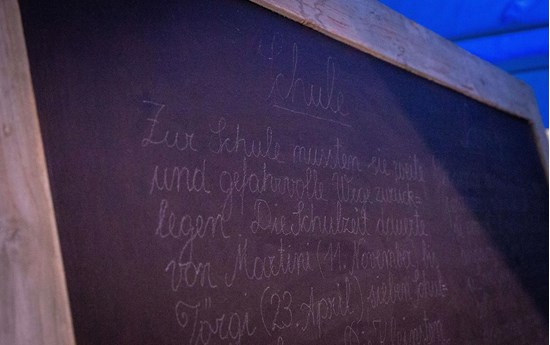 Schule
Zur Schule mussten sie weite
und gefahrvolle Wege zurück=
legen. Die Schulzeit dauerte
von Martini (11. November) bis
Jörgi (23. April) sieben Schul=
Die